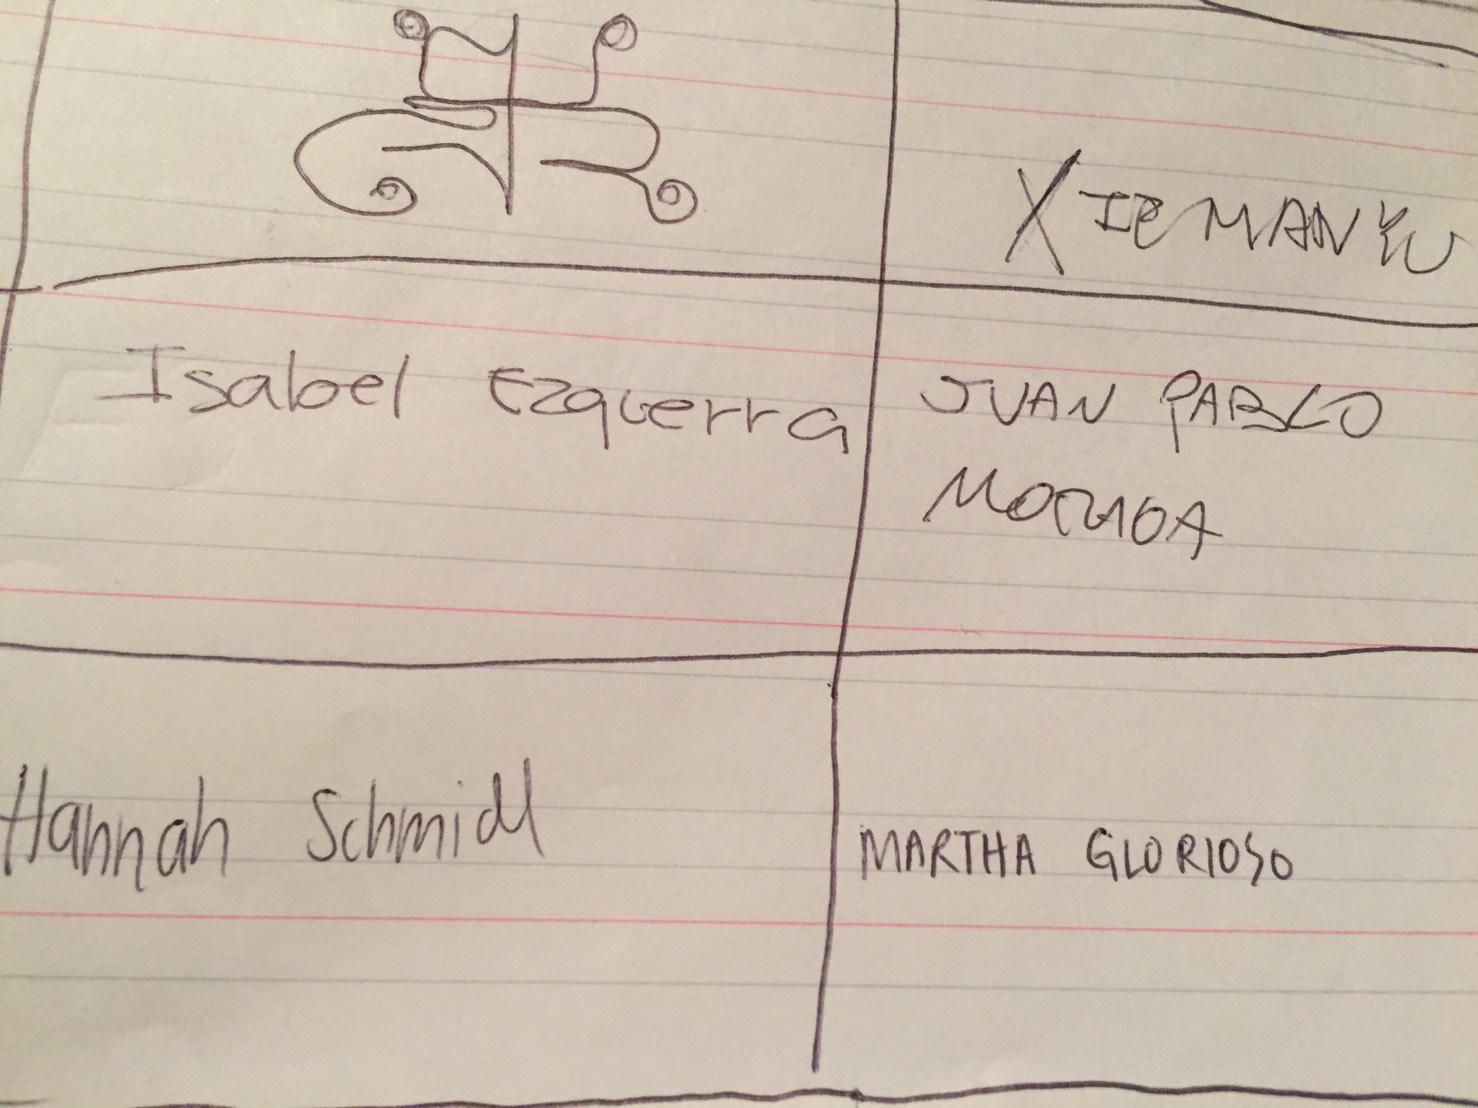 XIE MANYU
Isabel Ezquerra
JUAN PABLO
Hannah Schmidl
MARTHA GLORIOSO